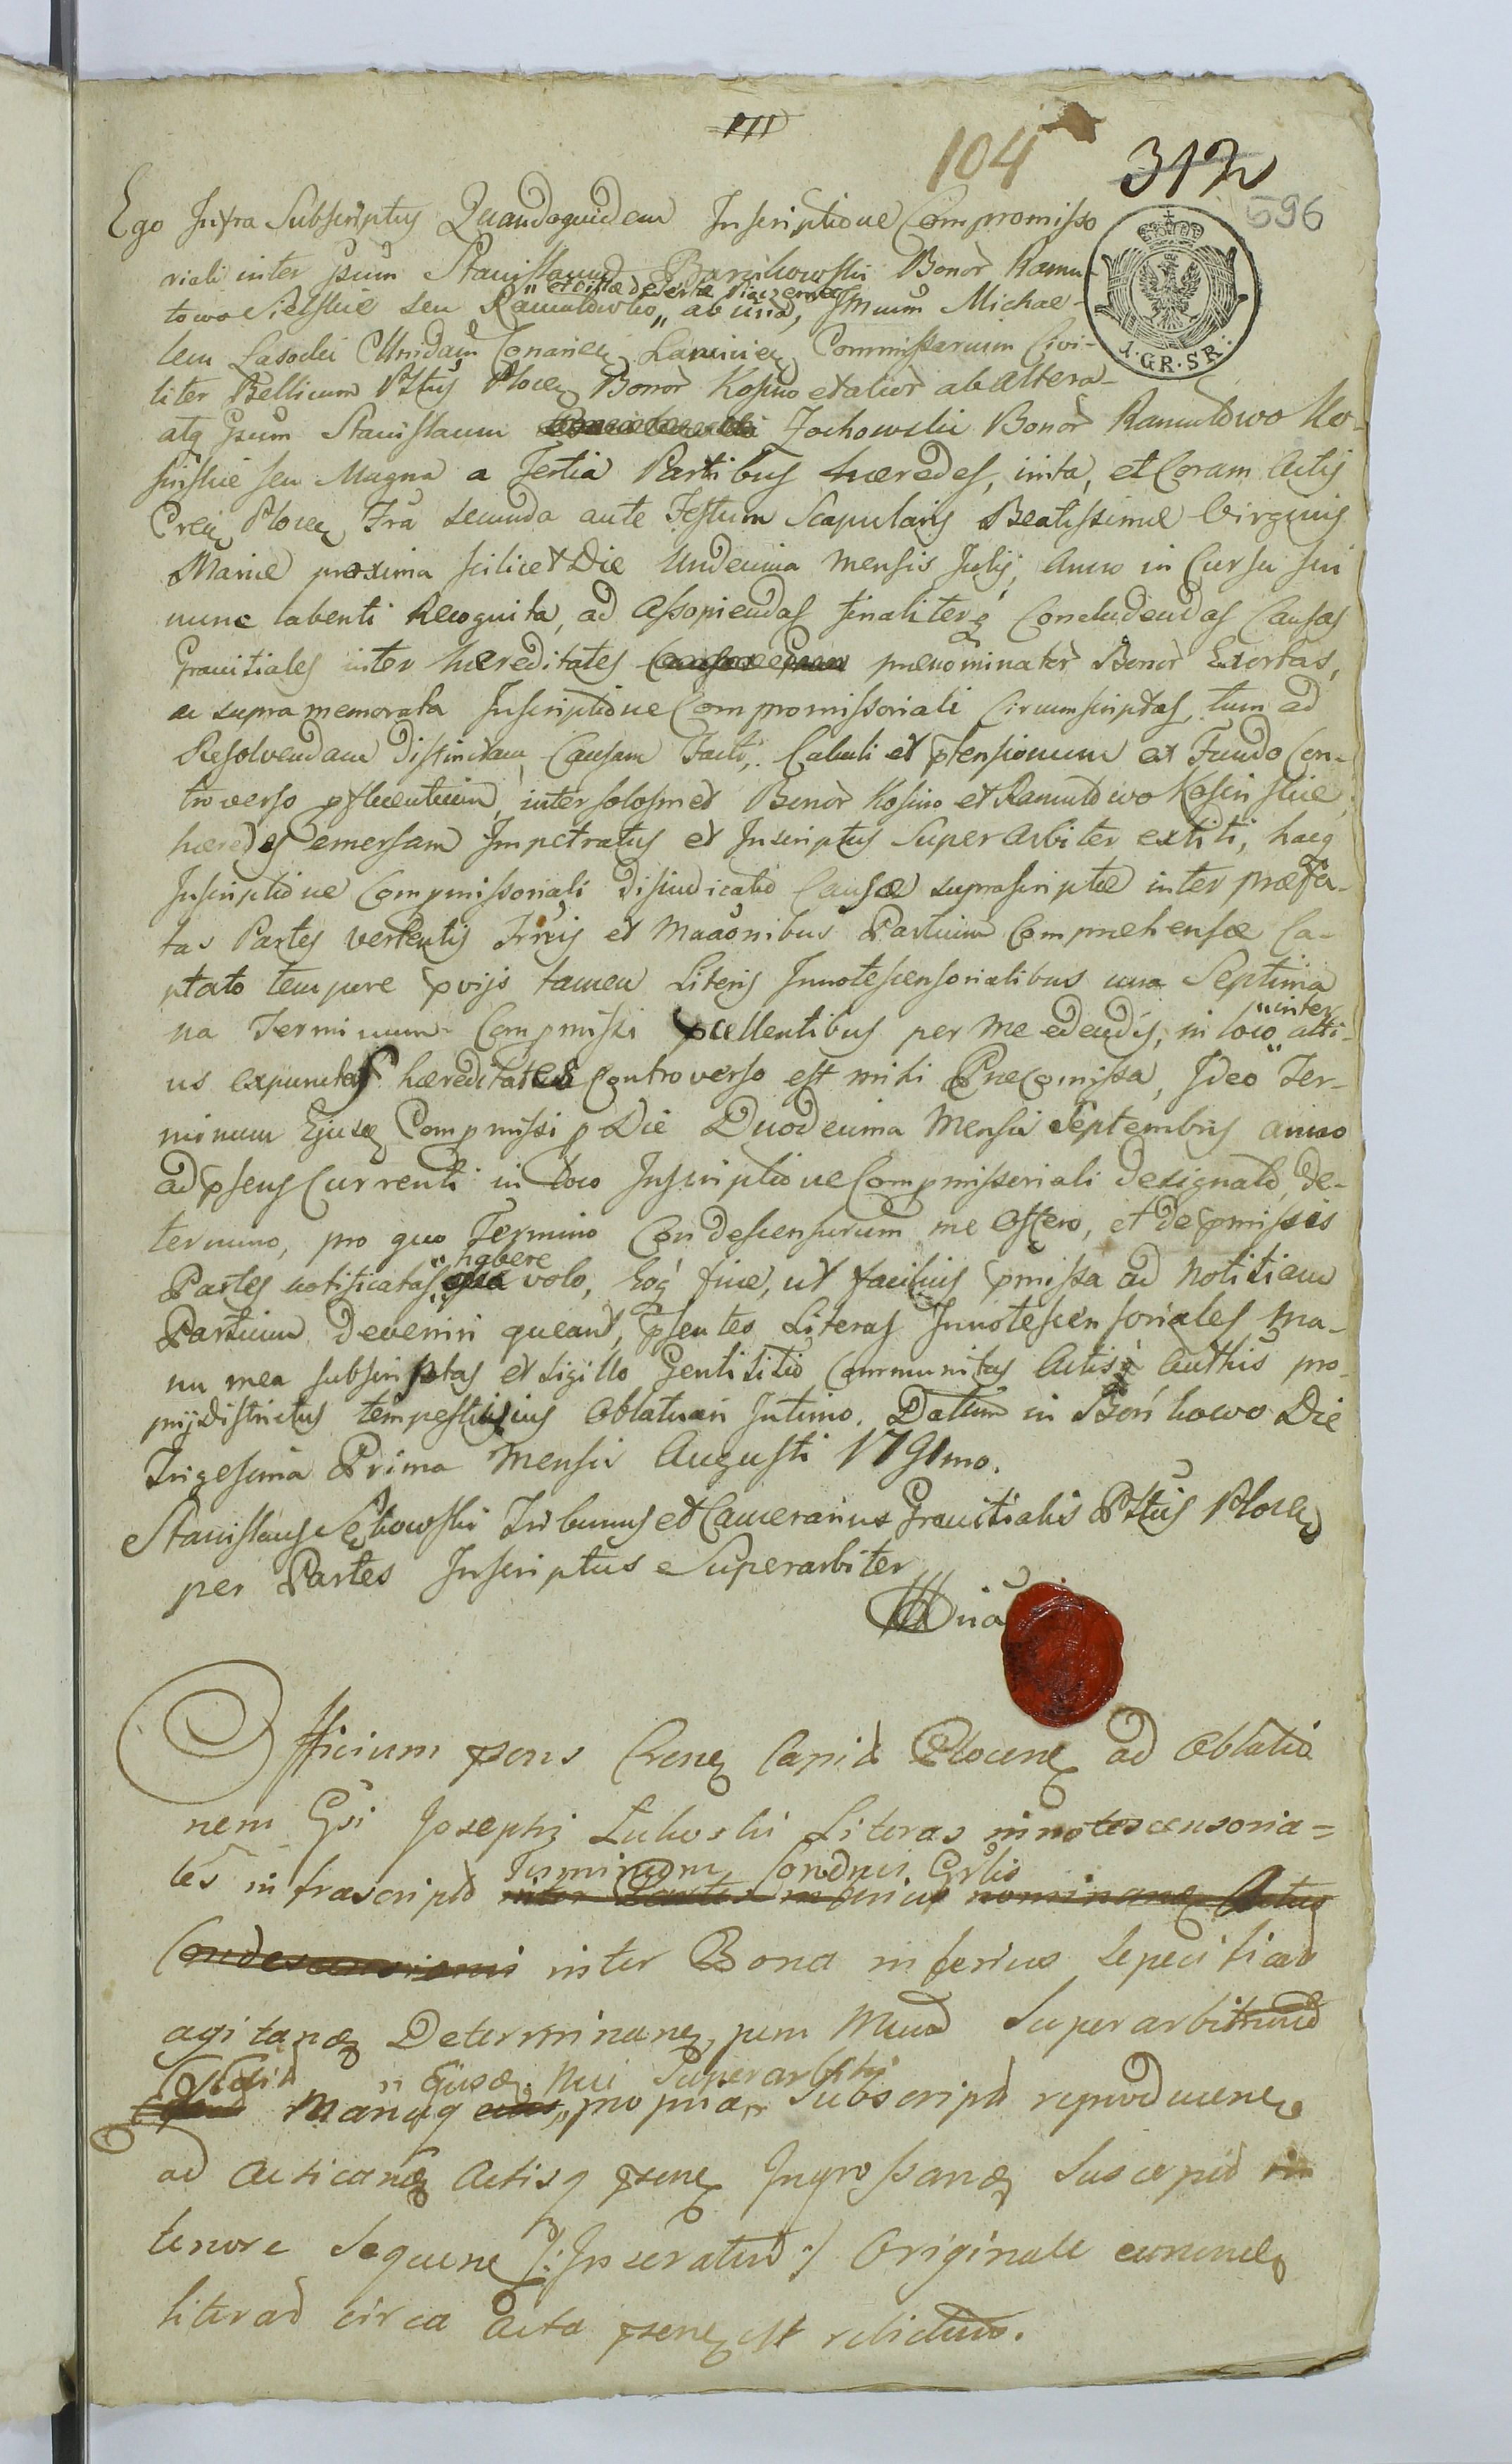 III
104
317
596
1·GR·SR·
Ego Infra Subscriptus Quandoquidem Inscriptione Compromisso
riali inter Gsum Stanislaum Borzikowski Bonor Ramu-
"et ciffæ desertæ
towo Sielskie seu Ramułtówko „ ab una, Mmum Michae-
lem Lasocki
Commissarium Civi-
liter Bellicum Pttus Plocen Bonor Kosino et alior ab altera
atq Gsum Stanislaum Zochowski Bonor Ramułtowo Ko-
sinskie seu Magna a Tertia Partibus hæredes, inita, et Coram Actis
Plocen Fra secunda ante Festum Scapularis Beatissimæ Virginis
Mariæ proxima scilicet Die Undecima Mensis Julij, Anno in Cursu sui
nunc labenti Recognita, ad Assopiendas finaliterq Concludendas Causas
Granitiales inter hæreditates prænominator Bonor Exortas,
ac supra memorata Inscriptione Compromissoriali Circumscriptas, tum ad
Resolvendam Distinctam Causam Facti, Calculi et ptensionum ex Fundo Con-
troverso pfluentium, inter solosmet Bonor Kosino et Ramułtowo Kosinskie
hæredes emersam Impetratus et Inscriptus Superarbiter extiti, hacq
Inscriptione Compmissoriali Disiudicatio Causæ suprascriptæ inter præfa-
tas Partes vertentis et Partium Comprehensæ Ca-
ptato tempore pvijs tamen Literis Innotescensorialibus una Septima
"inter
na Terminum Compmissi pcellentibus per me edendis, in loco „ alti-
us expunctas hæreditates Controverso est mihi Præcomissa, Ideo Ter-
minum Ejusd Compmissi p Die Duodecima Mensis Septembris anno
ad psens Currenti in loco Inscriptione Compmissoriali designato, de-
termino, pro quo Termino Condescensurum me Offero, et de pmissis
"habere
Partes notificatas volo, hocq fine, ut facilius pmissa ad notitiam
Partium Deveniri queant, psentes Literas Innotescensoriales ma-
nu mea subscriptas et Sigillo Gentilitio Communitas Actis Authis pro-
prij districtus tempestivius Oblatuari Intimo. Datum in Bońkowo Die
Trigesima Prima Mensis Augusti 1791mo.
Stanislaus Sękowski Tribunus et Camerarius Granitialis Pttus Plocen
per Partes Inscriptus Superarbiter
Officium psens Crense Capit Plocense ad Oblatio
nem Gsi Josephi Łukoski Literas innotescensoria=
Terminum Condnis
les infrascript inter Partes inferius nominan Actus
Condescensionis inter Bona inferius specificat
agitand Determinan, perm Mmum Superarbitrum
„ Ejusd Superarbitri
Manuq „ propria „ Subscript reproducen
ad Acticand Actisq psen Ingrossand Suscepit
tenore Sequen /: Inseratur :/ Originale
literar circa Acta psen est relictum.